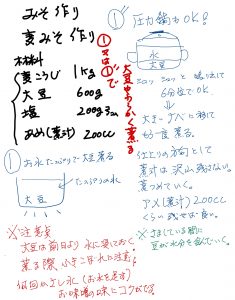 みそ作り
麦みそ作り
材料
麦こうじ 1kg
大豆 600g
塩 200gぐらい
あめ(煮汁) 200cc
①又は①'で
大豆やわらかく煮る
① お水たっぷりで大豆煮る
たっぷりの水
大豆
①' 圧力鍋もOK!
水
大豆
シュッ シュッと鳴り出して
6分位でOK.
大きいナベに移して
もう一度煮る。
仕上りの方向として
煮汁は沢山残さない。
煮つめていく。
アメ(煮汁) 200cc
くらい残せば良い。
※さましている間に
豆が水分を飲んでいく。
※注意点
大豆は前日より水に漬けておく。
煮る際、ふきこぼれに注意!
何回かさし水(お水を足す)
お味噌の味にコクがでる